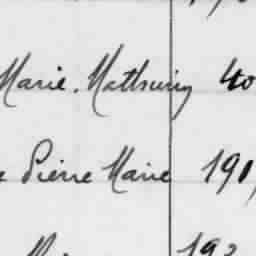 Marie. Mathurin 40
Pierre Marie 190
192